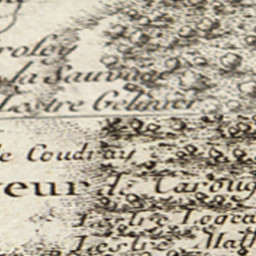 roley
la Sauvage
Lestre Gelinier
le Coudray
reur de Caroug
Lestre Logea
Lestre Math